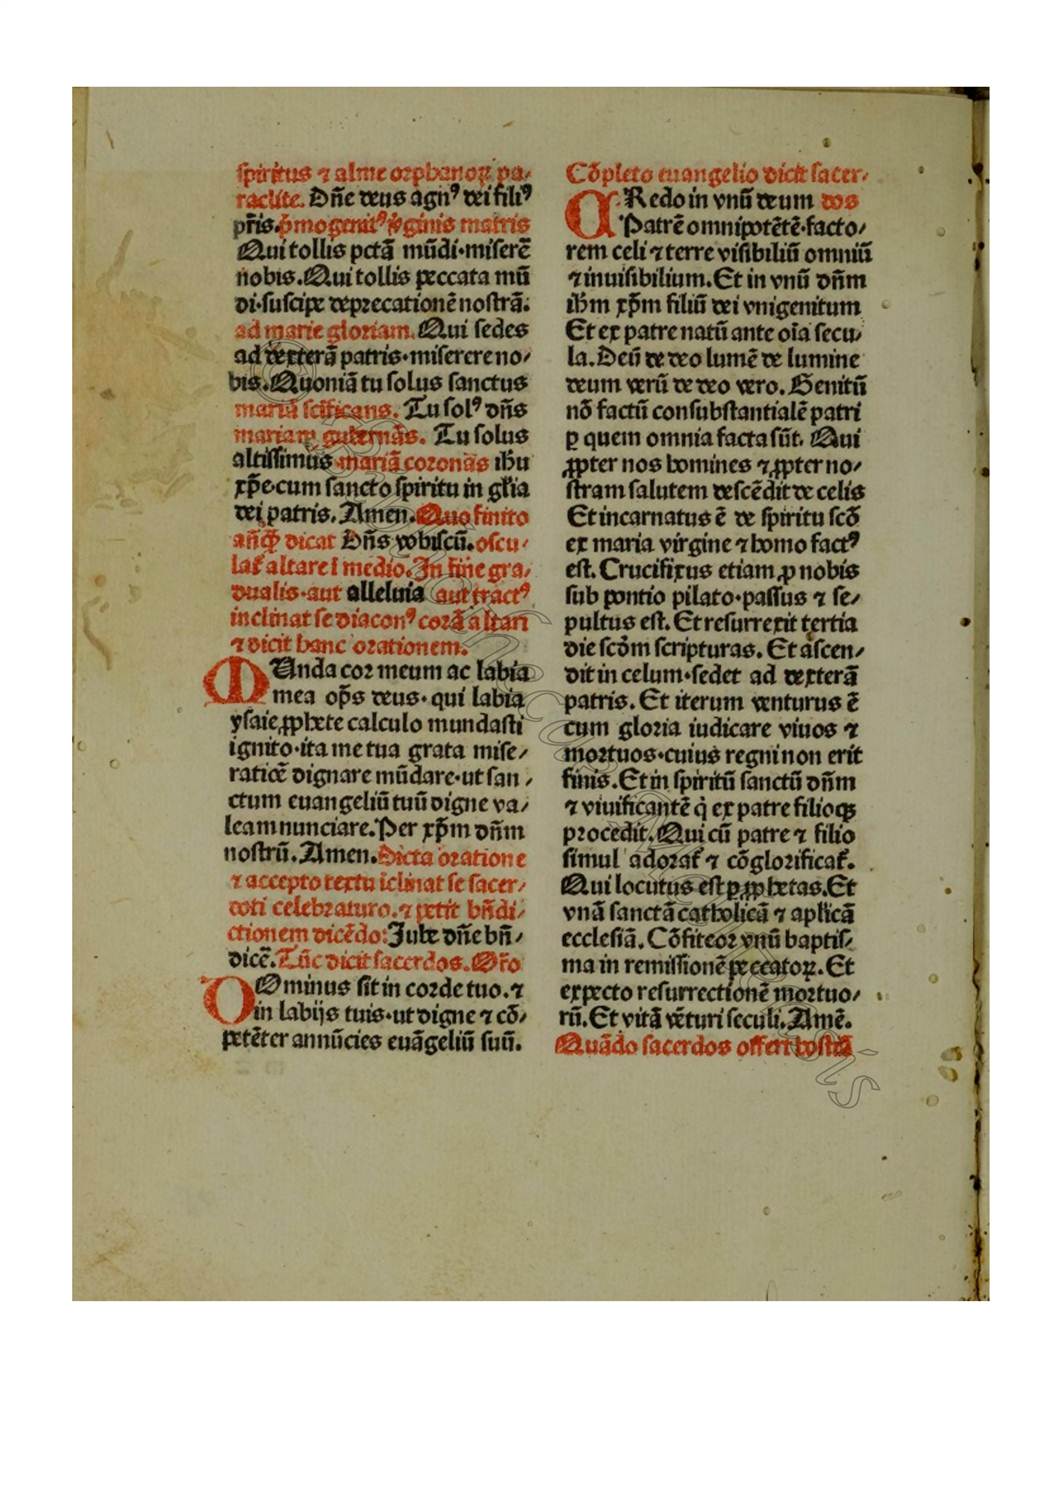 spiritus ⁊ alme orphanoꝝ pa⸗
raclite. Dñe deus agnꝰ dei filiꝰ
pr̃is. p̃mogenitꝰ ꝟginis matris
Qui tollis pctã mũdi·miserẽ
nobis. Qui tollis peccata mũ
di·suscipe deprecationẽ nostrã.
ad marie gloriam. Qui sedes
ad dexterã patris·miserere no⸗
bis. Quoniã tu solus sanctus
mariã scĩficans. Tu solꝰ dñs
mariam gubernãs. Tu solus
altissimus mariã coronãs ihũ
xp̃e·cum sancto spiritu in glĩa
dei patris. Amen. Quo finito
dicat Dñs vobiscũ. oscu⸗
lat̃ altare ĩ medio. In fine gra⸗
dualis·aut alleluia aut tractꝰ
inclinat se diaconꝰ corã altari
⁊ dicit hanc orationem.
MUnda cor meum ac labia
mea op̃s deus· qui labia
ysaie ꝓphete calculo mundasti
ignito·ita me tua grata mise⸗
raticẽ dignare mũdare·ut san⸗
ctum euangeliũ tuũ digne va⸗
leam nunciare. Per xp̃m dñm
nostrũ. Amen. Dicta oratione
⁊ accepto textu ĩclinat se sacer⸗
doti celebraturo. ⁊ petit bñdi⸗
ctionem dicẽdo: Jube dñe bñ⸗
dicẽ. Tũc dicit sacerdos. Or̃o
DOminus sit in corde tuo. ⁊
in labijs tuis·ut digne ⁊ cõ⸗
petẽter annũcies euãgeliũ suũ.
Cõpleto euangelio dicit sacer⸗
CRedo in vnũ deum dos
Patrẽ omnipotẽtẽ·facto⸗
rem celi ⁊ terre visibiliũ omniũ
⁊ inuisibilium. Et in vnũ dñm
ihm̃ xp̃m filiũ dei vnigenitum
Et ex patre natũ ante oĩa secu⸗
la. Deũ de deo lumẽ de lumine
deum verũ de deo vero. Genitũ
nõ factũ consubstantialẽ patri
ꝑ quem omnia facta sũt. Qui
ꝓpter nos homines ⁊ ꝓpter no⸗
stram salutem descẽdit de celis
Et incarnatus ẽ de spiritu scõ
ex maria virgine ⁊ homo factꝰ
est. Crucifixus etiam ꝓ nobis
sub pontio pilato·passus ⁊ se⸗
pultus est. Et resurrexit tertia
die scõm scripturas. Et ascen⸗
dit in celum·sedet ad dexterã
patris. Et iterum venturus ẽ
cum gloria iudicare viuos ⁊
mortuos·cuius regni non erit
finis. Et in spiritũ sanctũ dñm
⁊ viuificantẽ q̇ ex patre filioqꝫ
procedit. Qui cũ patre ⁊ filio
simul adorat̃ ⁊ cõglorificat̃.
Qui locutus est ꝑ ꝓphetas. Et
vnã sanctã catholicã ⁊ apl̃icã
ecclesiã. Cõfiteor vnũ baptis⸗
ma in remissionẽ peccatoꝝ. Et
expecto resurrectionẽ mortuo⸗
rũ. Et vitã vẽturi seculi. Amẽ.
Quãdo sacerdos offert hostiã